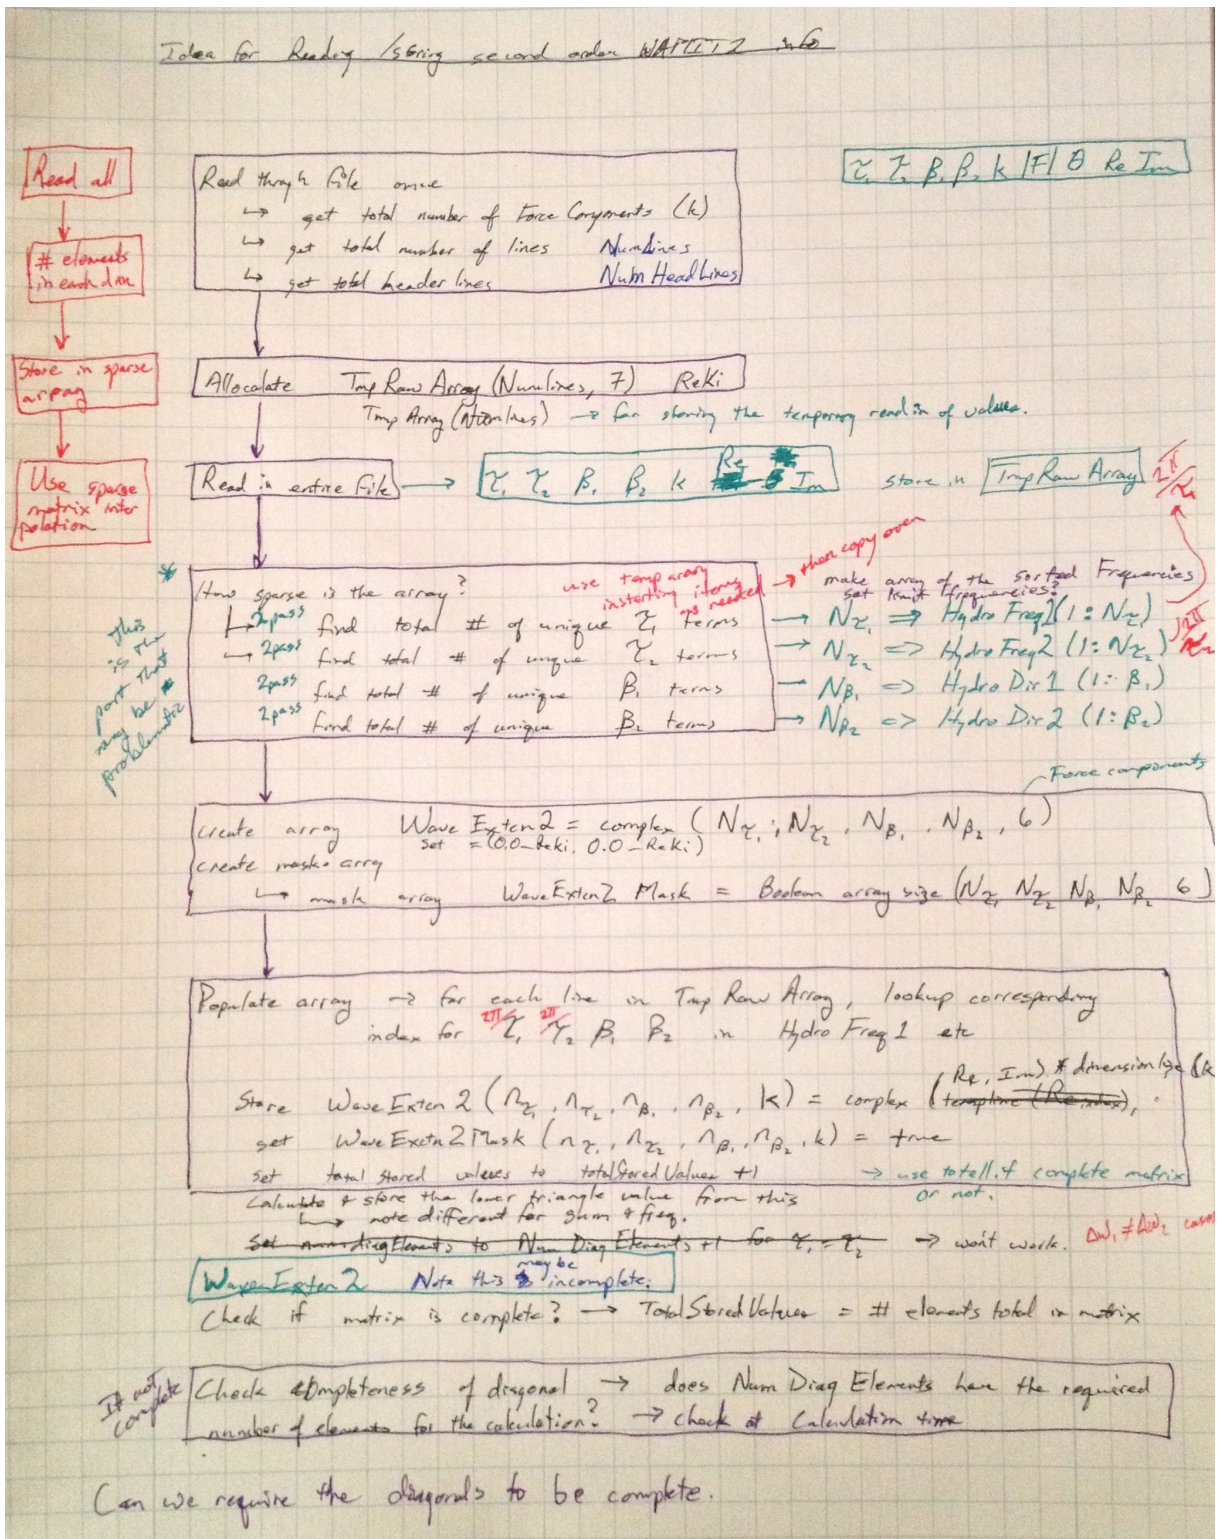 Idea for Reading /storing second order WAMIT 2 info
Read all
# elements
in each dim
Store in sparse
array
Use sparse
matrix inter
polation
τ₁ τ₂ β₁ β₂ k |F| θ Re Im
Read through file once
↳ get total number of Force Components (k)
↳ get total number of lines NumLines
↳ get total header lines Num HeadLines
Allocalate Tmp Raw Array (Numlines, 7) ReKi
Tmp Array (Numlines) → for storing the temporary read in of values.
Read in entire file → τ₁ τ₂ β₁ β₂ k Re Im store in Tmp Raw Array
2π/τ₁
* This
is the
part that
may be
problematic
How sparse is the array?
use temp array
inserting items
as needed → then copy over
make array of the sorted Frequencies
↳ 2pass find total # of unique τ₁ terms → Nτ₁ => Hydro Freq1 (1: Nτ₁)
↳ 2pass find total # of unique τ₂ terms → Nτ₂ => Hydro Freq2 (1: Nτ₂) 2π/τ₂
2pass find total # of unique β₁ terms → Nβ₁ => Hydro Dir 1 (1: β₁)
2pass find total # of unique β₂ terms → Nβ₂ => Hydro Dir 2 (1: β₂)
Force components
create array Wave Exctn2 = complex (Nτ₁, Nτ₂, Nβ₁, Nβ₂, 6)
set = (0.0_Reki, 0.0_Reki)
create mask array
↳ mask array WaveExctn2 Mask = Boolean array size (Nτ₁ Nτ₂ Nβ₁ Nβ₂ 6)
Populate array → for each line in Tmp Raw Array, lookup corresponding
index for 2π/τ₁ 2π/τ₂ β₁ β₂ in Hydro Freq 1 etc
(Re, Im)
Store Wave Exctn 2 (nτ₁, nτ₂, nβ₁, nβ₂, k) = complex
set Wave Exctn 2 Mask (nτ₁, nτ₂, nβ₁, nβ₂, k) = true
set total stored values to totalStoredValues +1 → use to tell if complete matrix
or not.
Calculate & store the lower triangle value from this
↳ note different for sum & freq.
Set num diag Elements to Num Diag Elements +1 for τ₁ = τ₂ → won't work. Δω₁ ≠ Δω₂ cases
Wave Exctn 2 Note this may be incomplete.
Check if matrix is complete? → TotalStoredValues = # elements total in matrix
If not
complete
Check completeness of diagonal → does Num Diag Elements have the required
number of elements for the calculation? → check at Calculation time
Can we require the diagonals to be complete.